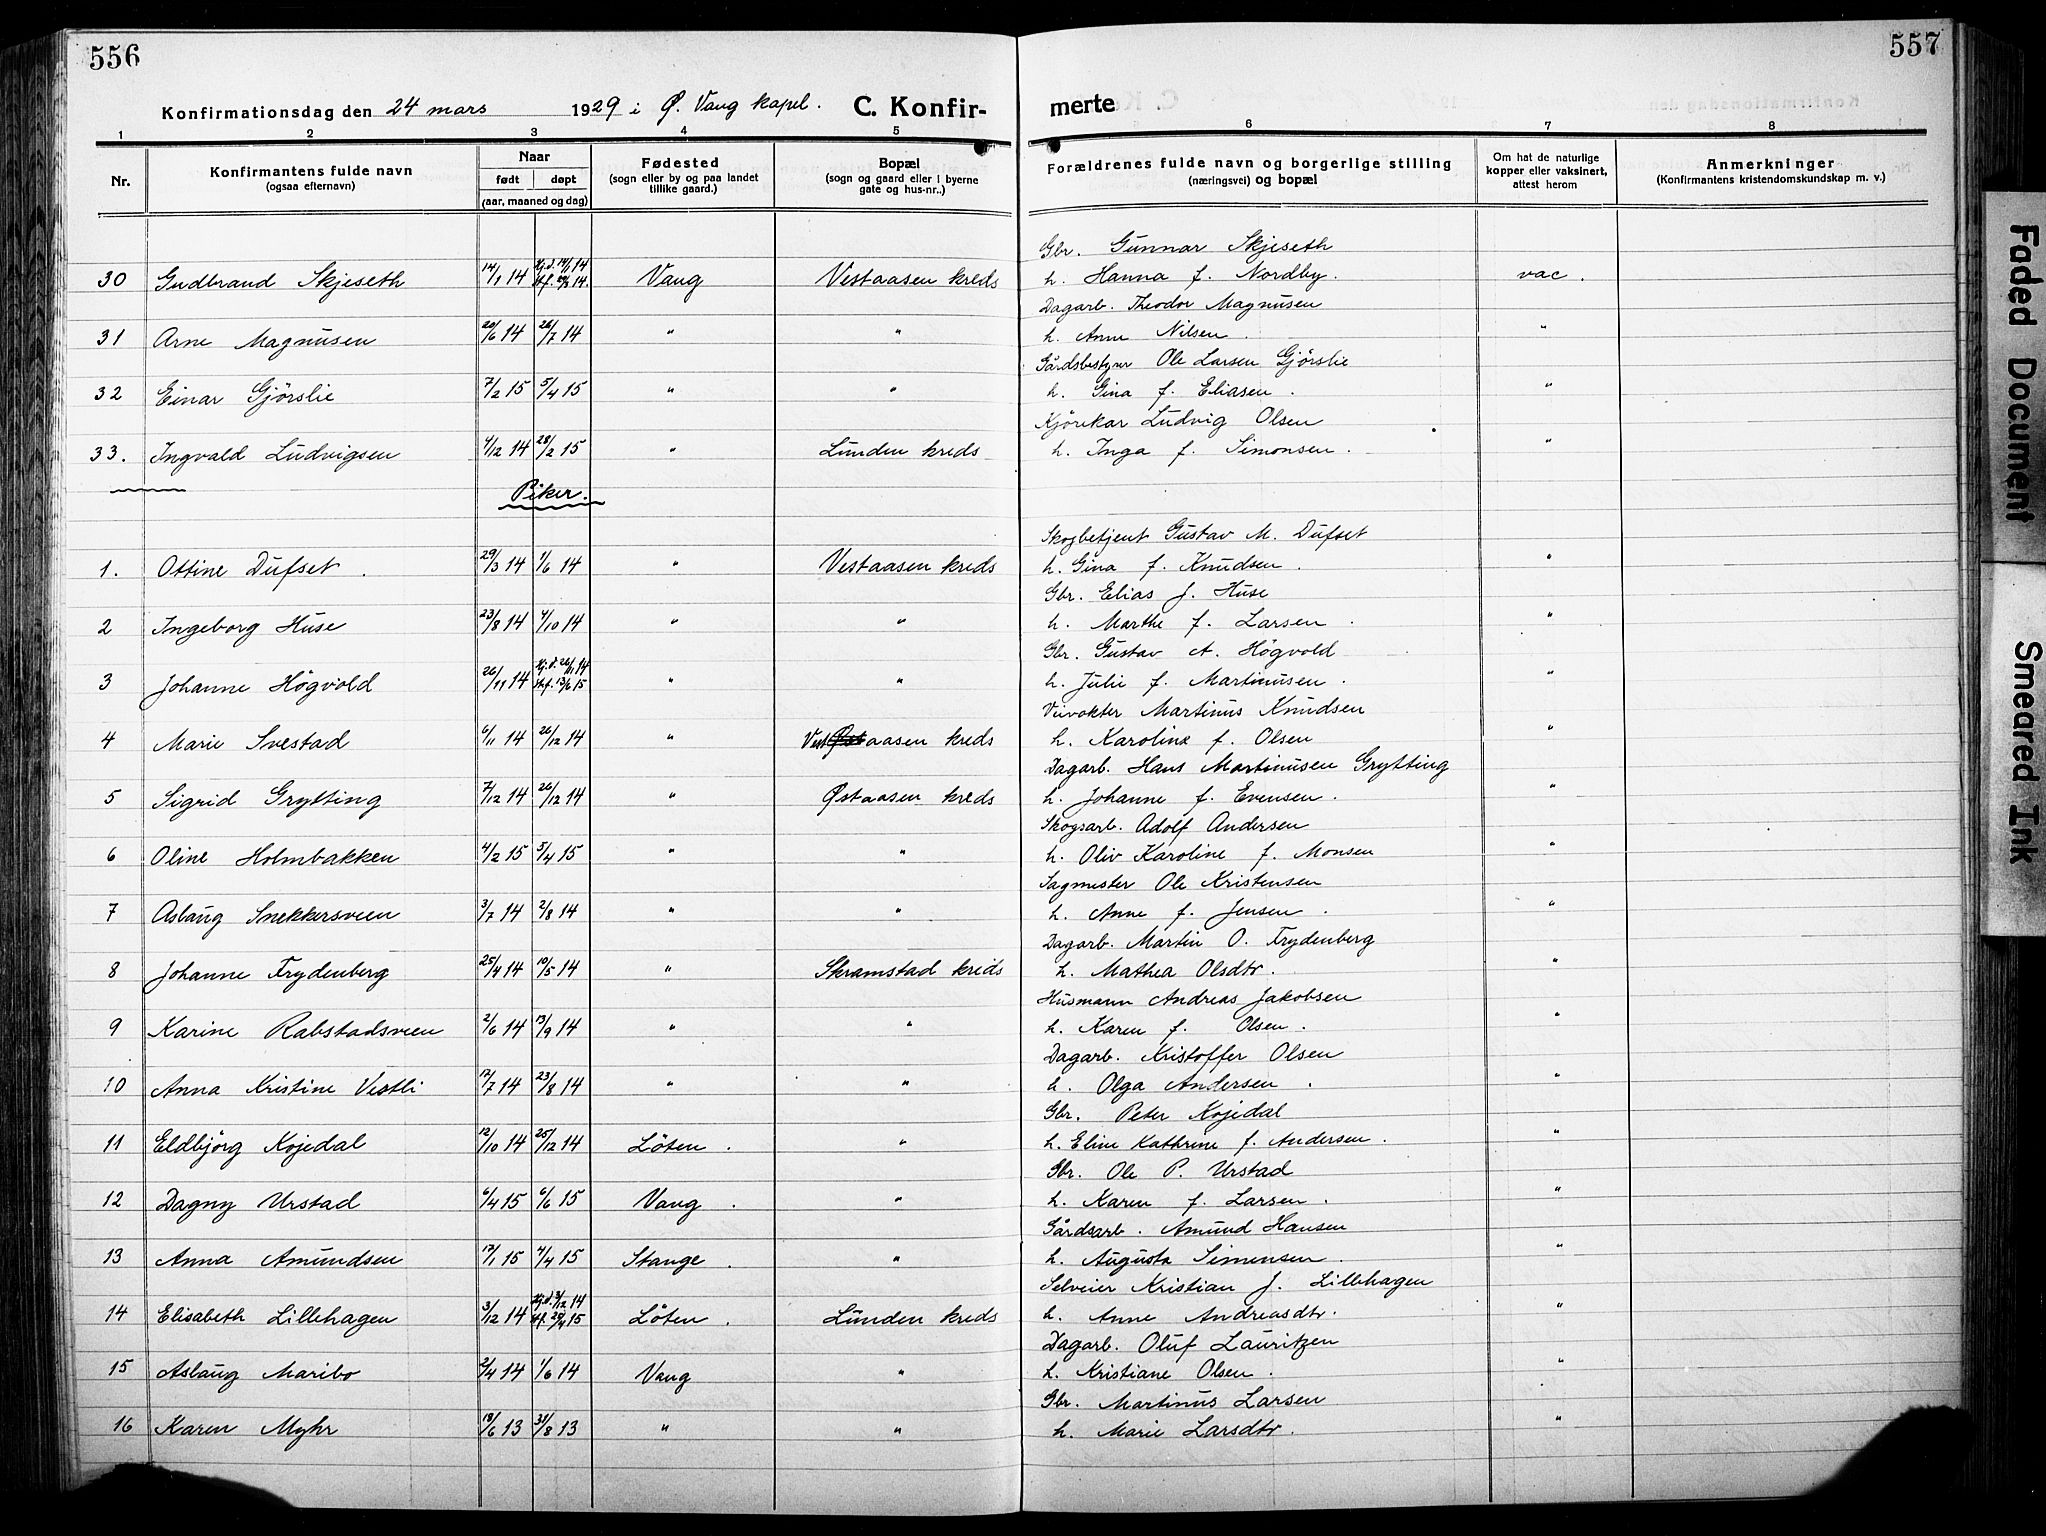 556
557
Konfirmationsdag den 24 mars 1929 i Ø. Vang kapel. C. Konfir-
merte
1 2 3 4 5
6 7 8
Nr.
Konfirmantens fulde navn
(ogsaa efternavn)
Naar
født døpt
(aar, maaned og dag)
Fødested
(sogn eller by og paa landet
tillike gaard.)
Bopæl
(sogn og gaard eller i byerne
gate og hus-nr.)
Forældrenes fulde navn og borgerlige stilling
(næringsvei) og bopæl
Om hat de naturlige
kopper eller vaksinert,
attest herom
Anmerkninger
(Konfirmantens kristendomskundskap m. v.)
Gbr. Gunnar Skjeseth
30 Gudbrand Skjeseth 14/1 14 Hj.d. 14/1 14 Vang Vestaasen kreds h. Hanna f. Nordby. vac.
Dagarb. Theodor Magnusen
31 Arne Magnusen 20/6 14 26/7 14 " " h. Anne Nilsen. "
Gårdsbestyrer Ole Larsen Gjörslie
32 Einar Gjörslie 7/2 15 5/4 15 " " h. Gina f. Eliasen. "
Kjörekar Ludvig Olsen
33. Ingvald Ludvigsen 4/12 14 28/2 15 " Lunden kreds h. Inga f. Simonsen. "
Piker.
Skogbetjent Gustav M. Dufset
1. Ottine Dufset. 29/3 14 1/6 14 " Vestaasen kreds h. Gina f. Knudsen. "
Gbr. Elias J. Huse
2 Ingeborg Huse 23/8 14 4/10 14 " " h. Marthe f. Larsen. "
Gbr. Gustav A. Högvold
3 Johanne Högvold 26/11 14 Hj.d. 26/11 14 Stf. 13/6 15 " " h. Julie f. Martinusen. "
Veivokter Martinus Knudsen
4 Marie Svestad 6/11 14 26/12 14 " Vestaasen kreds h. Karoline f. Olsen "
Dagarb. Hans Martinusen Grytting
5 Sigrid Grytting 7/12 14 26/12 14 " Østaasen kreds h. Johanne f. Evensen. "
Skogsarb. Adolf Andersen
6 Oline Holmbakken 4/2 15 5/4 15 " " h. Oliv Karoline f. Monsen "
Sagmester Ole Kristensen
7 Aslaug Snekkersveen 3/7 14 2/8 14 " " h. Anne f. Jensen. "
Dagarb. Martin O. Frydenberg
8 Johanne Frydenberg 25/4 14 10/5 14 " Skramstad kreds h. Mathea Olsdtr. "
Husmann Andreas Jakobsen
9 Karine Rabstadsveen 2/6 14 13/9 14 " " h. Karen f. Olsen. "
Dagarb. Kristoffer Olsen
10 Anna Kristine Vestli 12/7 14 23/8 14 " " h. Olga Andersen. "
Gbr. Peter Kojedal
11 Eldbjörg Kojedal 12/10 14 25/12 14 Löten. " h. Eline Kathrine f. Andersen. "
Gbr. Ole P. Urstad
12 Dagny Urstad 6/4 15 6/6 15 Vang. " h. Karen f. Larsen. "
Gårdsarb. Amund Hansen
13 Anna Amundsen 17/1 15 4/4 15 Stange. " h. Augusta Simensen. "
Selveier Kristian J. Lillehagen
14 Elisabeth Lillehagen 3/12 14 Hj.d. 3/12 14 Stf. 25/4 15 Löten. Lunden kreds h. Anne Andreasdtr. "
Dagarb. Oluf Lauritzen
15 Aslaug Maribo 2/4 14 1/6 14 Vang " h. Kristiane Olsen. "
Gbr. Martinus Larsen
16 Karen Myhr 18/6 13 31/8 13 " " h. Marie Larsdtr. "
Faded Document
Smeared Ink